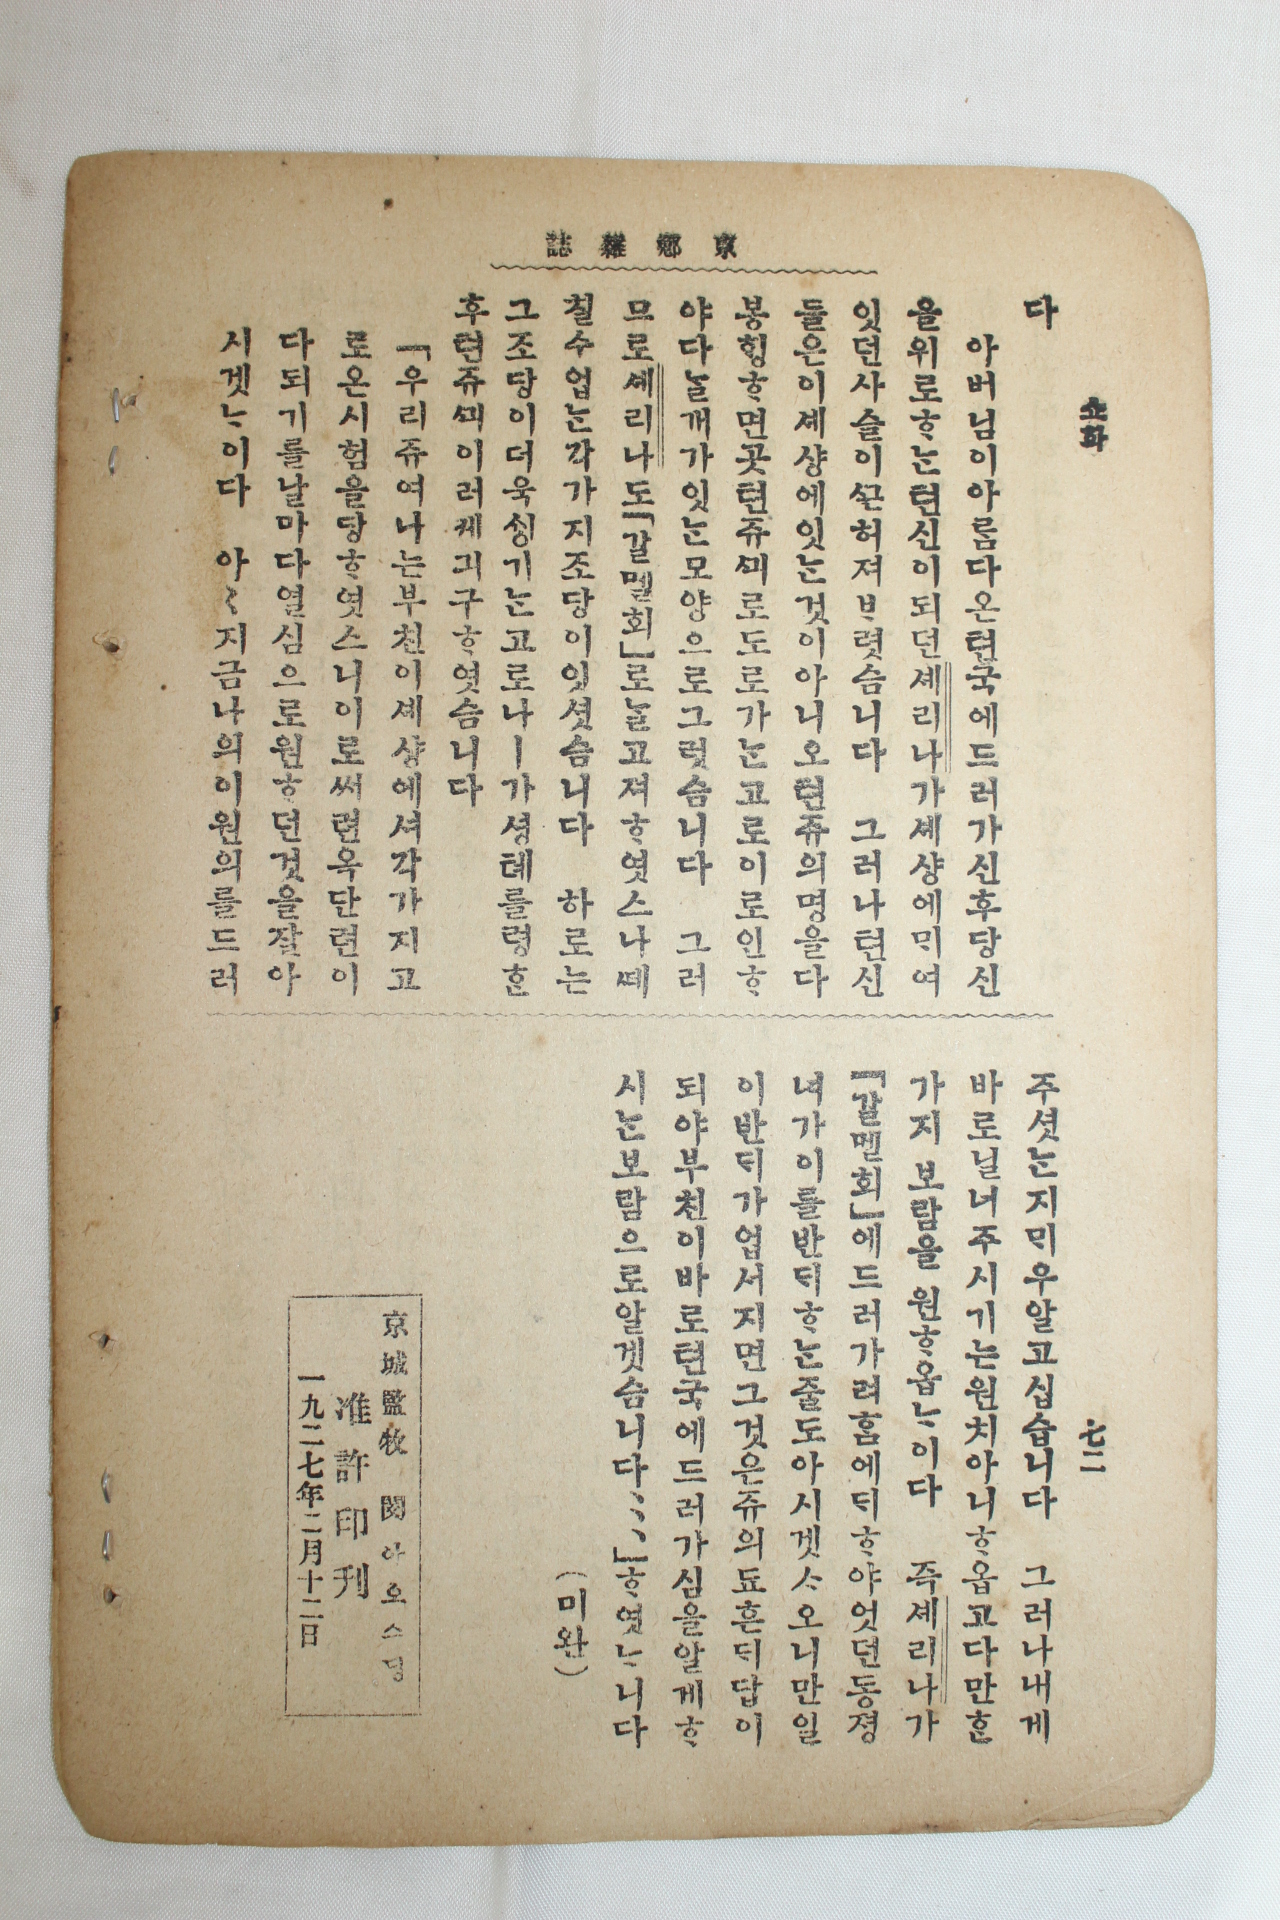 京鄕雜誌
소화
七二
다
아버님이아름다온텬국에드러가신후당신
을위로ᄒᆞᄂᆞᆫ텬신이되던셰리나가셰샹에ᄆᆡ여
잇던사슬이ᄭᅳᆫ허져ᄇᆞ렷슴니다 그러나텬신
들은이셰샹에잇ᄂᆞᆫ것이아니오텬쥬의명을다
봉ᄒᆡᆼᄒᆞ면곳텬쥬ᄭᅴ로도로가ᄂᆞᆫ고로이로인ᄒᆞ
야다ᄂᆞᆯ개가잇ᄂᆞᆫ모양으로그럿슴니다 그러
므로셰리나도「갈멜회」로ᄂᆞᆯ고져ᄒᆞ엿스나ᄯᅦ
칠수업ᄂᆞᆫ각가지조당이잇셧슴니다 하로는
그조당이더욱ᄉᆡᆼ기ᄂᆞᆫ고로나ㅣ가셩톄를령ᄒᆞᆫ
후텬쥬ᄭᅴ이러케긔구ᄒᆞ엿슴니다
「우리쥬여나는부친이셰샹에셔각가지고
로온시험을당ᄒᆞ엿스니이로써련옥단련이
다되기를날마다열심으로원ᄒᆞ던것을잘아
시겟ᄂᆞ이다 아〻지금나의이원의를드러
주셧ᄂᆞᆫ지ᄆᆡ우알고십습니다 그러나내게
바로닐너주시기는원치아니ᄒᆞ옵고다만ᄒᆞᆫ
가지 보람을 원ᄒᆞ옵ᄂᆞ이다 즉셰리나가
「갈멜회」에드러가려홈에ᄃᆡᄒᆞ야엇던동졍
녀가이를반ᄃᆡᄒᆞᄂᆞᆫ줄도아시겟ᄉᆞ오니만일
이반ᄃᆡ가업서지면그것은쥬의됴흔ᄃᆡ답이
되야부친이바로텬국에드러가심을알게ᄒᆞ
시ᄂᆞᆫ보람으로알겟슴니다、、、」ᄒᆞ엿ᄂᆞ니다
(미완)
京城監牧 閔아오스딩
准許印刊
一九二七年二月十二日